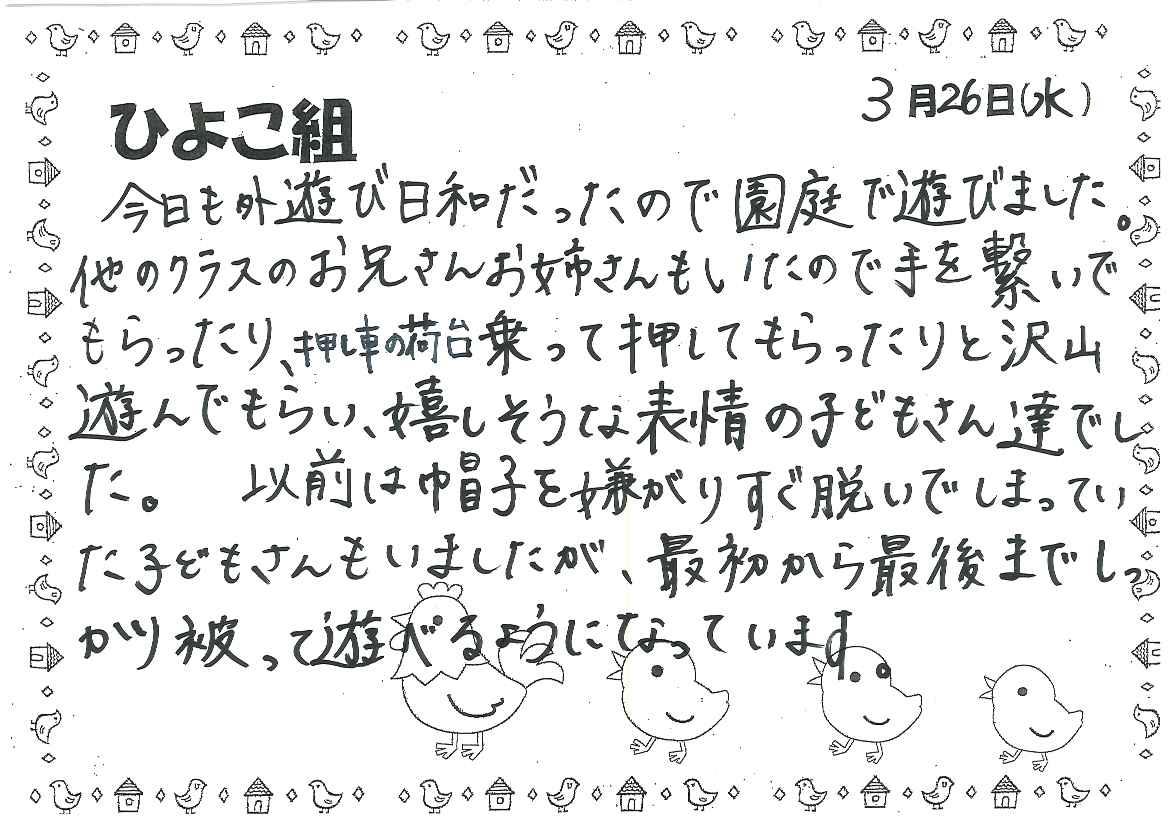 3月26日(水)
ひよこ組
今日も外遊び日和だったので園庭で遊びました。
他のクラスのお兄さんお姉さんもいたので手を繋いで
もらったり、押し車の荷台乗って押してもらったりと沢山
遊んでもらい、嬉しそうな表情の子どもさん達でし
た。 以前は帽子を嫌がりすぐ脱いでしまってい
た子どもさんもいましたが、最初から最後までしっ
かり被って遊べるようになっています。